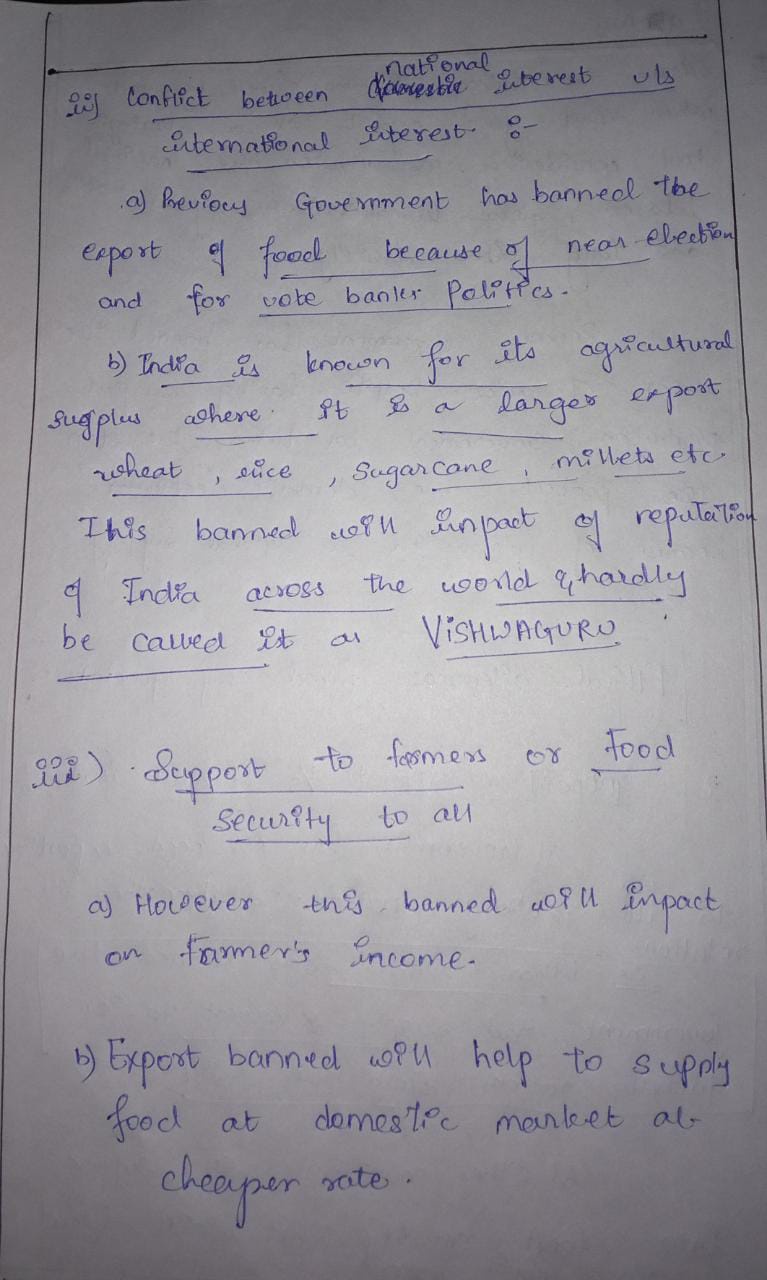 national
ii) Conflict between domestic interest v/s
international interest :-
a) Previous Government has banned the
export of food because of near election
and for vote banks Politics.
b) India is known for its agricultural
surplus where it is a larger export
wheat, rice, Sugarcane, millets etc.
This banned will impact of reputation
of India across the world & hardly
be called it as VISHWAGURU
iii) Support to farmers or food
Security to all
a) However this banned will impact
on farmer's income.
b) Export banned will help to supply
food at domestic market at
cheaper rate.